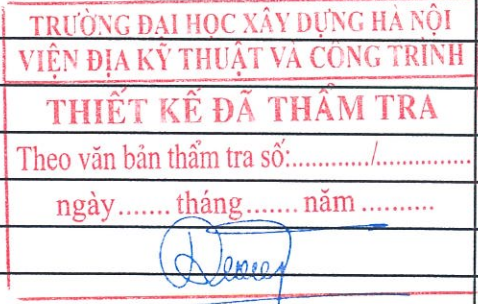 TRƯỜNG ĐẠI HỌC XÂY DỰNG HÀ NỘI
VIỆN ĐỊA KỸ THUẬT VÀ CÔNG TRÌNH
THIẾT KẾ ĐÃ THẨM TRA
Theo văn bản thẩm tra số:............/...............
ngày....... tháng....... năm ..........